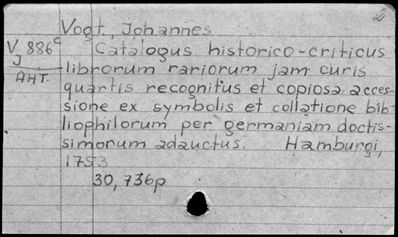 Vogt, Johannes
V 886c Catalogus historico-criticus
J librorum rariorum jam curis
АНТ. quartis recognitus et copiosa acces-
sione ex symbolis et collatione bib-
liophilorum per germaniam doctis-
simorum adauctus. Hamburgi,
1753
30, 736p